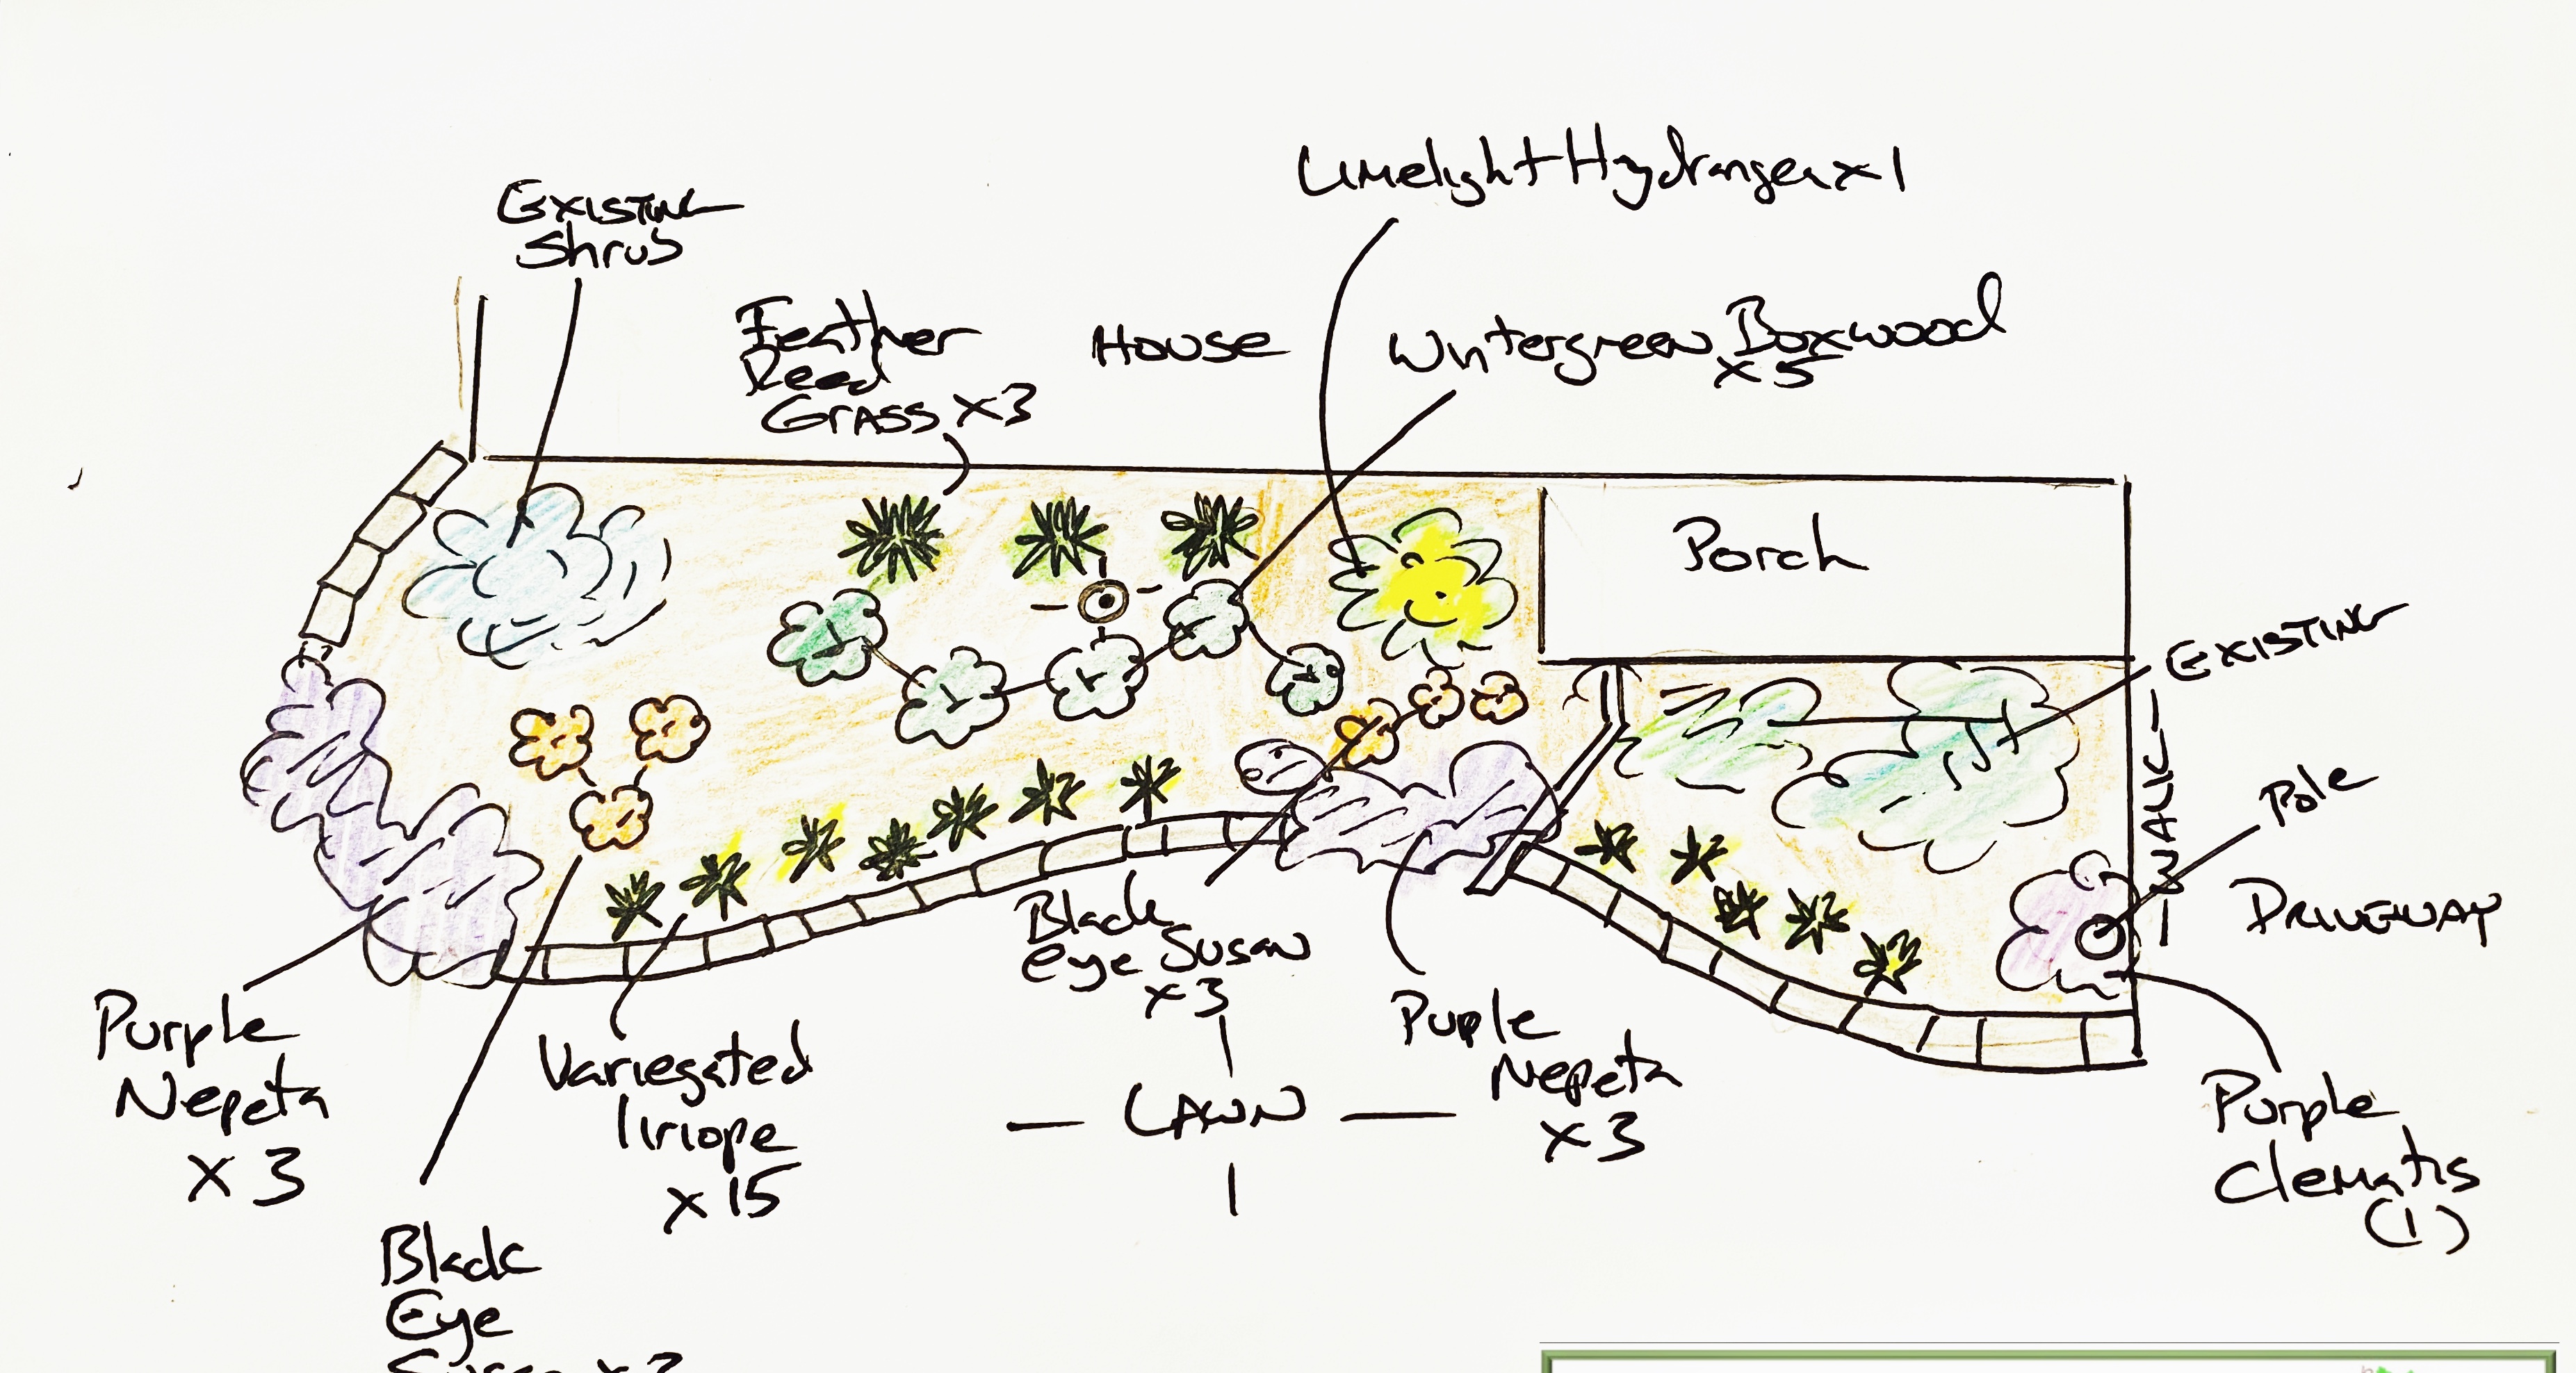 Limelight Hydrangea x 1
Existing
Shrub
Feather
Reed
Grass x3
House
Wintergreen Boxwood
x5
Porch
Existing
Walk
Pole
Driveway
Black
eye Susan
x3
Purple
Nepeta
x3
Variegated
liriope
x15
Puple
Nepeta
x3
Lawn
Purple
Clematis
(1)
Black
Eye